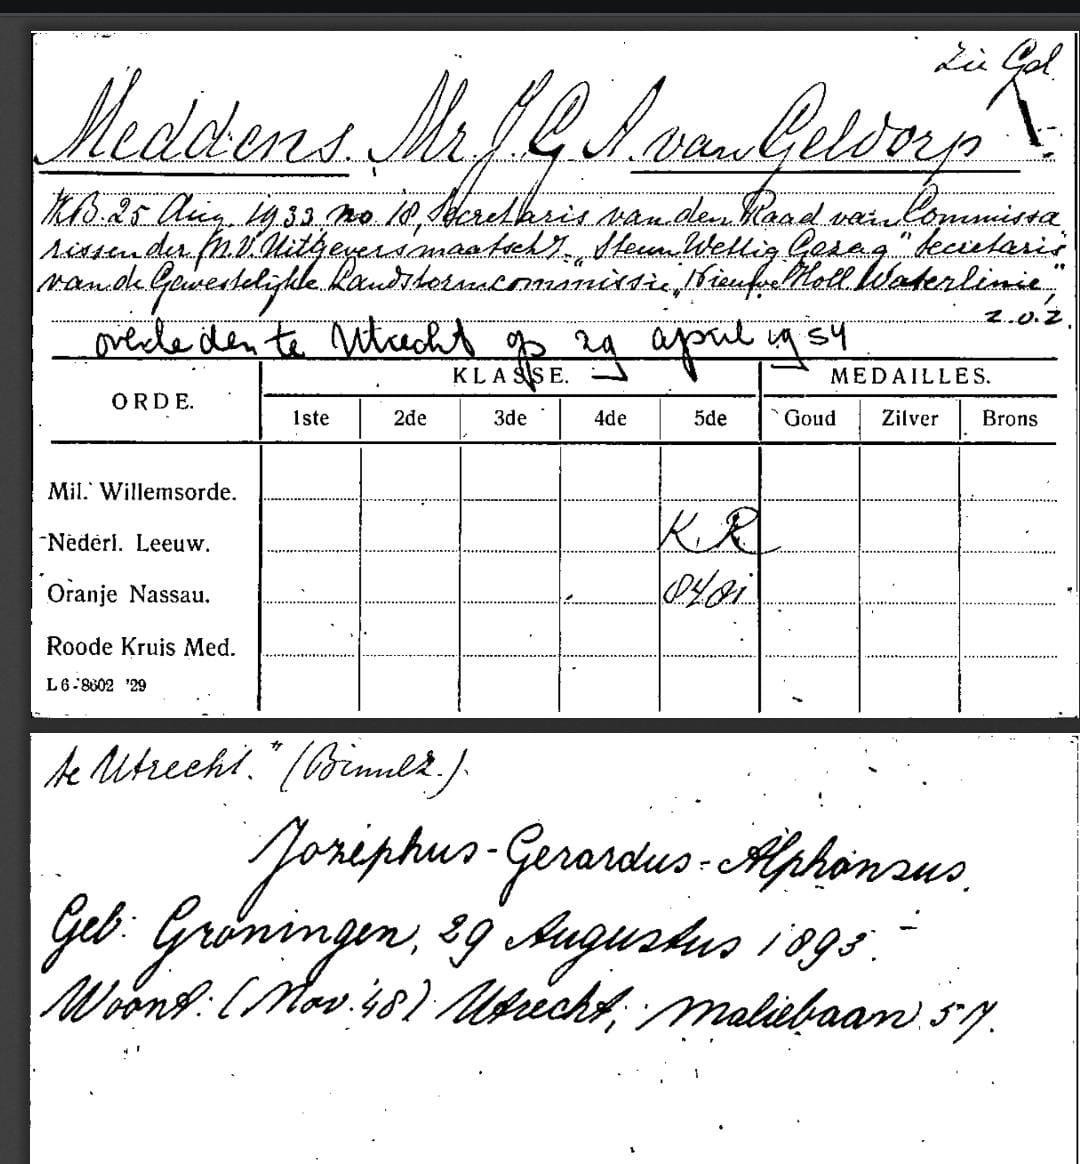 Zie Gel.
Meddens. Mr. J. G. A. van Geldorp
K.B. 25 Aug. 1933 no. 18, Secretaris van den Raad van Commissa
rissen der N.V. Uitgeversmaatsch. "Steun Wettig Gezag" Secretaris
van de Gewestelijke Landstormcommissie "Nieuwe Holl. Waterlinie,"
z.o.z.
overleden te Utrecht op 29 april 1954
ORDE. KLASSE. MEDAILLES.
1ste 2de 3de 4de 5de Goud Zilver Brons
Mil. Willemsorde.
Nederl. Leeuw. K. R
Oranje Nassau.
Roode Kruis Med.
L 6-8602 '29
te Utrecht." (Binnlz.).
Jozéphus-Gerardus-Alphonsus.
Geb: Groningen, 29 Augustus 1893.-
Woont: (Nov. '48) Utrecht, Maliebaan 57.